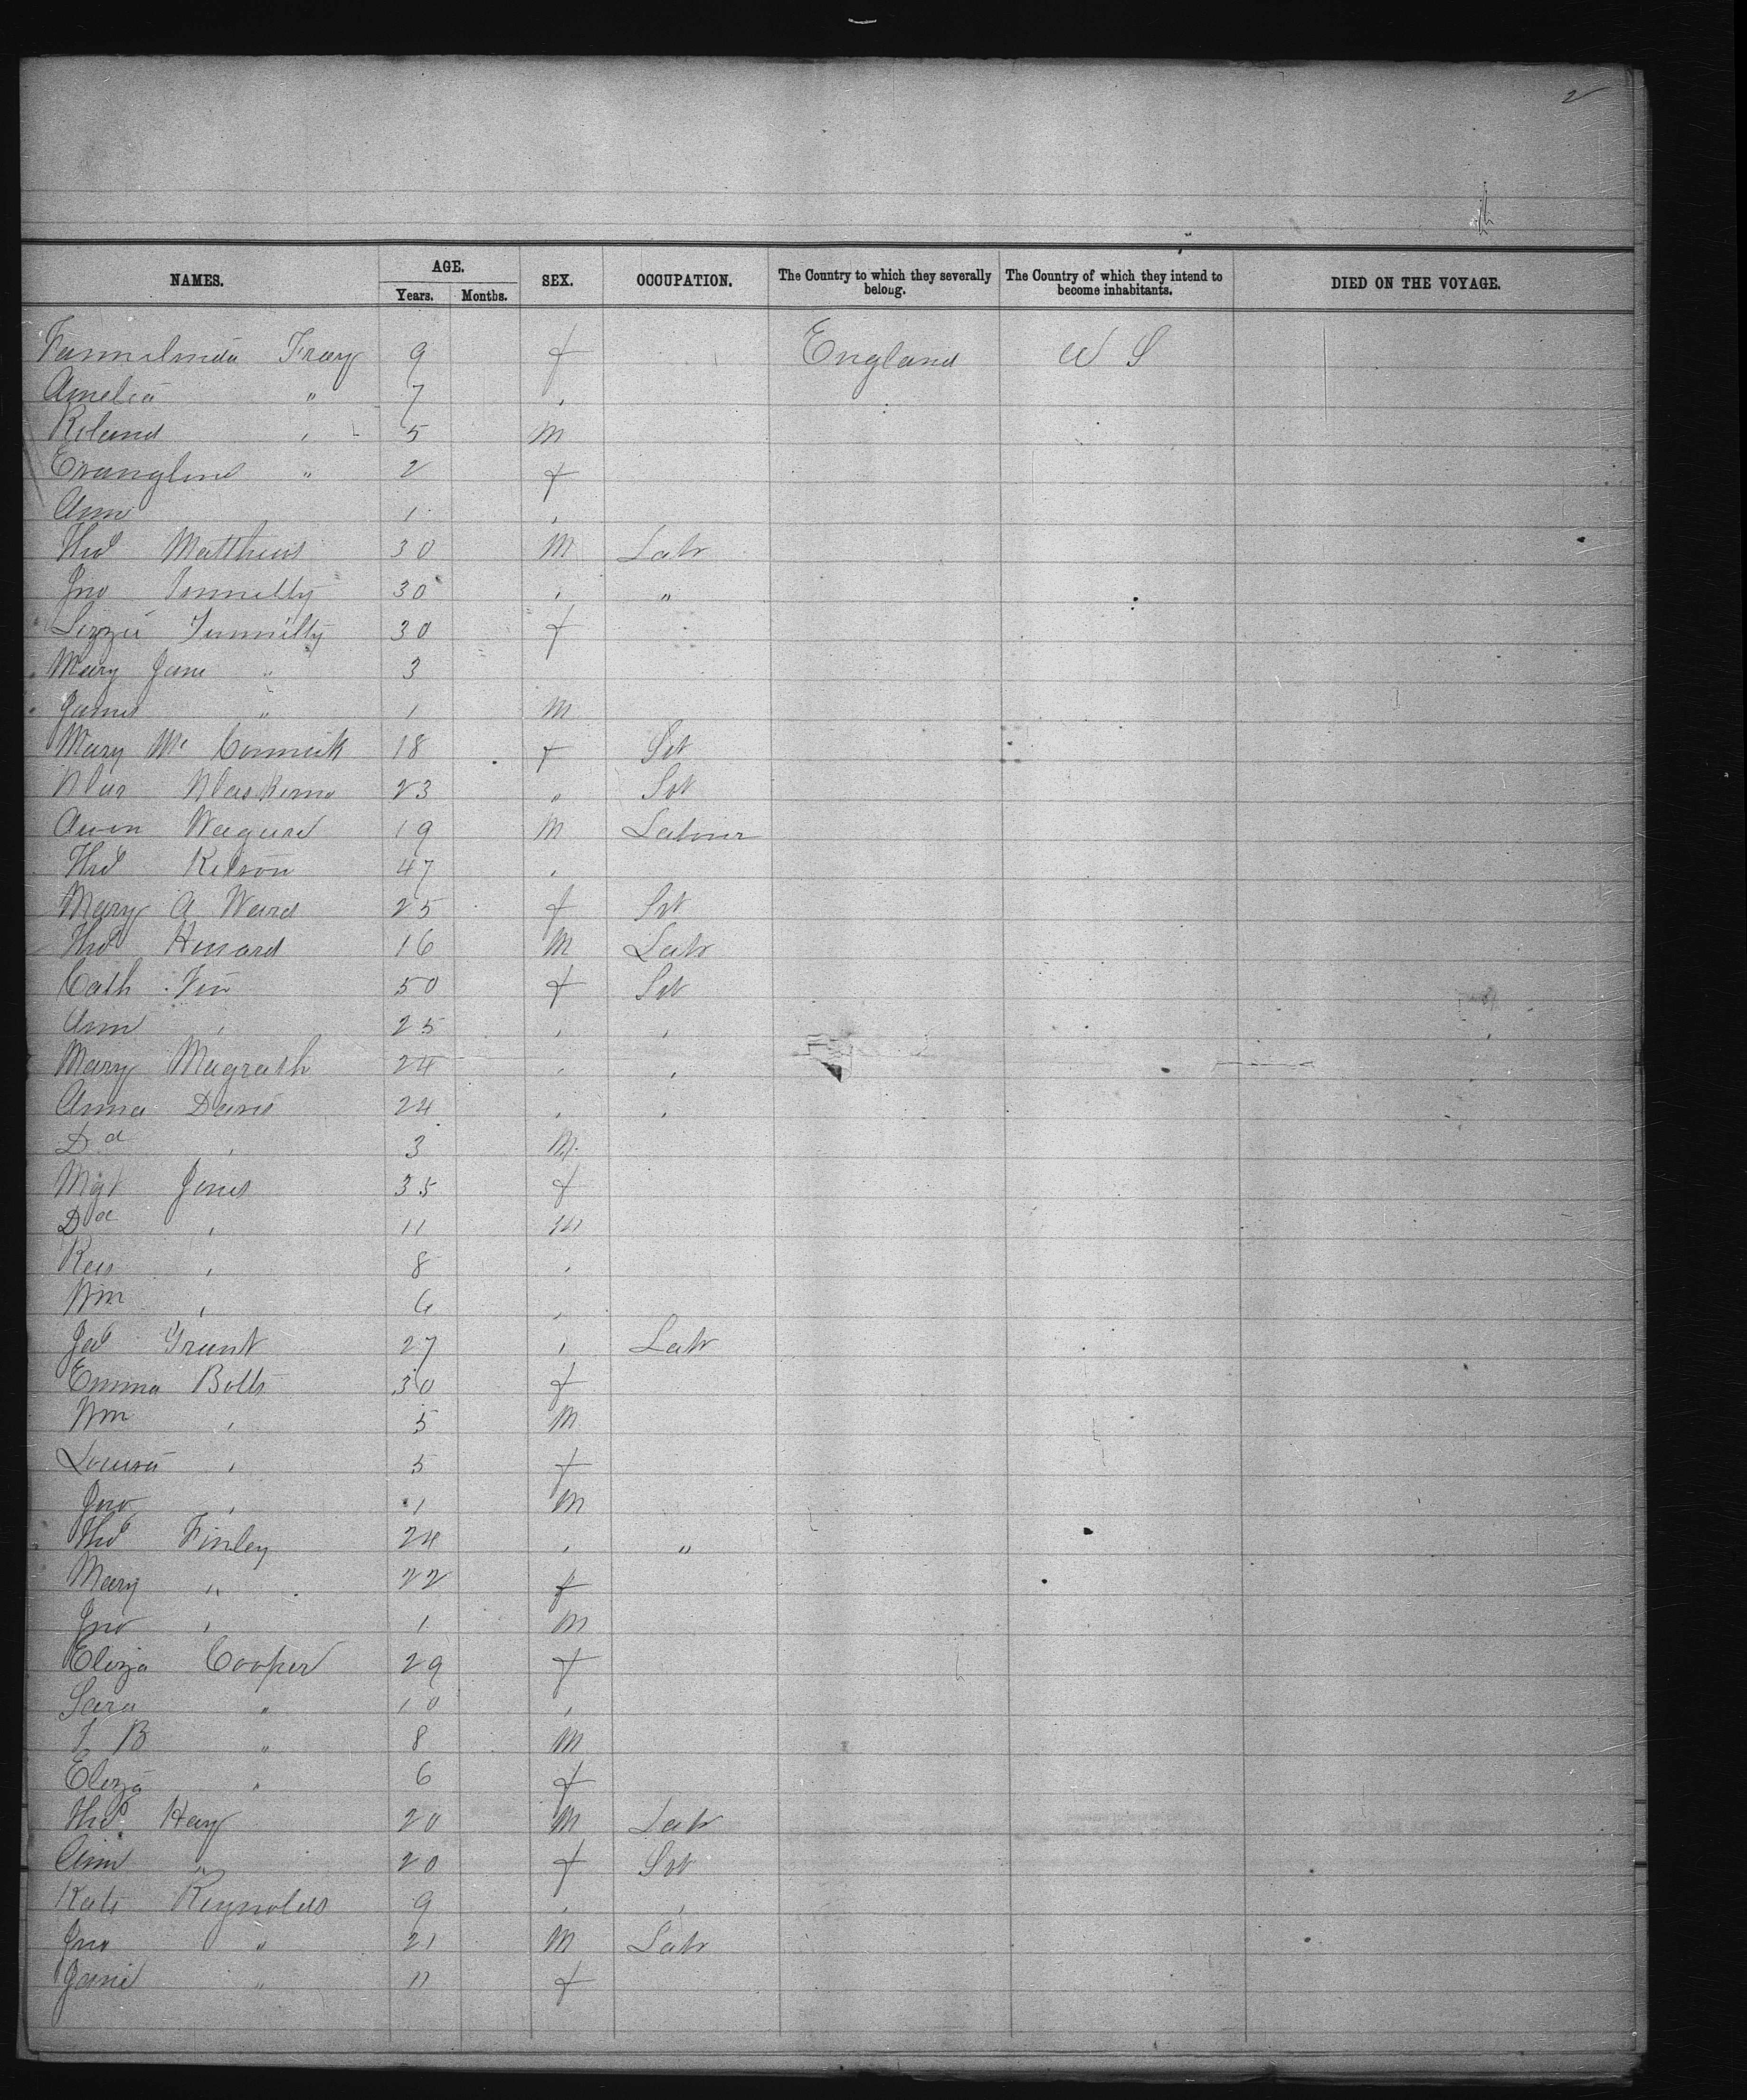 2
NAMES. AGE. Years. Months. SEX. OCCUPATION. The Country to which they severally belong. The Country of which they intend to become inhabitants. DIED ON THE VOYAGE.
Fray 9 f England U S
Amelia " 7 "
Roland " 5 M
Evangline " 2 f
Ann 1 "
Thos Matthews 30 M Labr
Jno 30 " "
Lizzie 30 f
Mary Jane " 3
James " 1 M
Mary Mc Cormick 18 f Svt
23 " Svt
Owen 19 M Labourer
Thos 47 "
Mary A Ward 25 f Svt
Thos 16 M Labr
Cath Fin 50 f Svt
Ann " 25 " "
Mary Magrath 24 " "
Anna Davis 24 " "
Dd " 3 M
Mgt Jones 35 f
Dd " 11 M
Rees " 8 "
Wm " 6 "
Jas Grant 27 " Labr
Emma Botts 30 f
Wm " 5 M
Louisa " 5 f
Jno " 1 M
Thos Finley 24 " "
Mary " 22 f
Jno " 1 M
Eliza Cooper 29 f
Sara " 10 "
J B " 8 M
Eliza " 6 f
Thos Hay 20 M Labr
Ann " 20 f Svt
Kate Reynolds 9 " "
Jno " 21 M Labr
Jane " 11 f